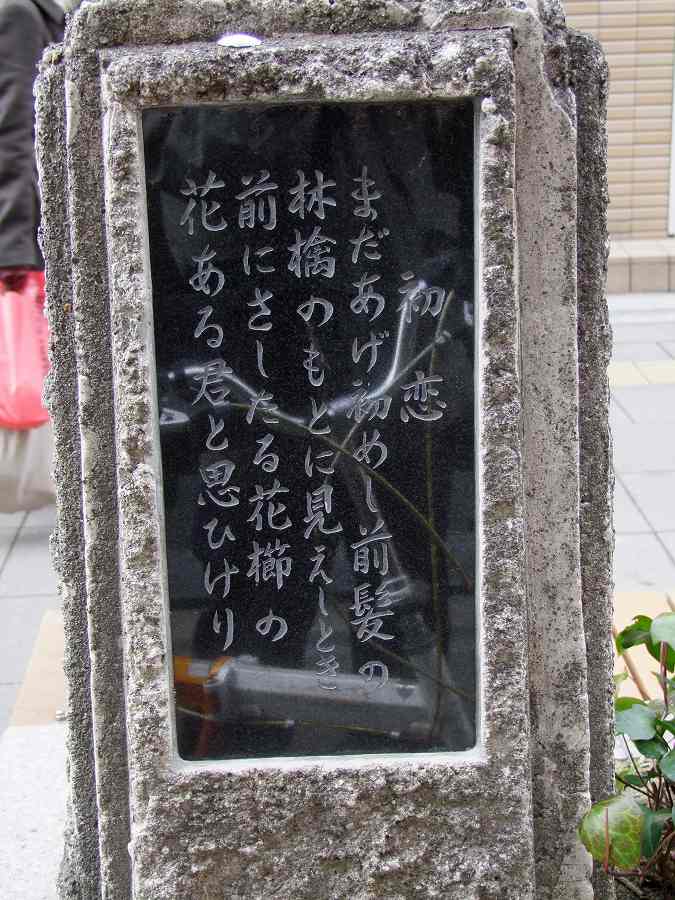 初恋
まだあげ初めし前髪の
林檎のもとに見えしとき
前にさしたる花櫛の
花ある君と思ひけり